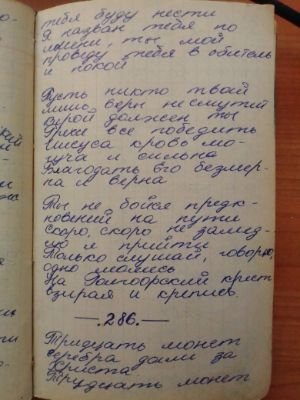 тебя буду нести
Я назвал тебя по
имени, ты мой
проведу тебя в обитель
и покой
Пусть никто твой
мир веры не смутит
верой должен ты
Грехи все победить
Иисуса кровь мо-
гуча и сильна
Благодать Его безмер-
на и верна
Ты не бойся предк-
новений на пути
скоро, скоро не замед-
лю я прийти
Только слушай, говорю,
одно молись
На Голгофский крест
взирая и крепись
—. 286. —
Тридцать монет
серебра дали за
Христа
Тридцать монет